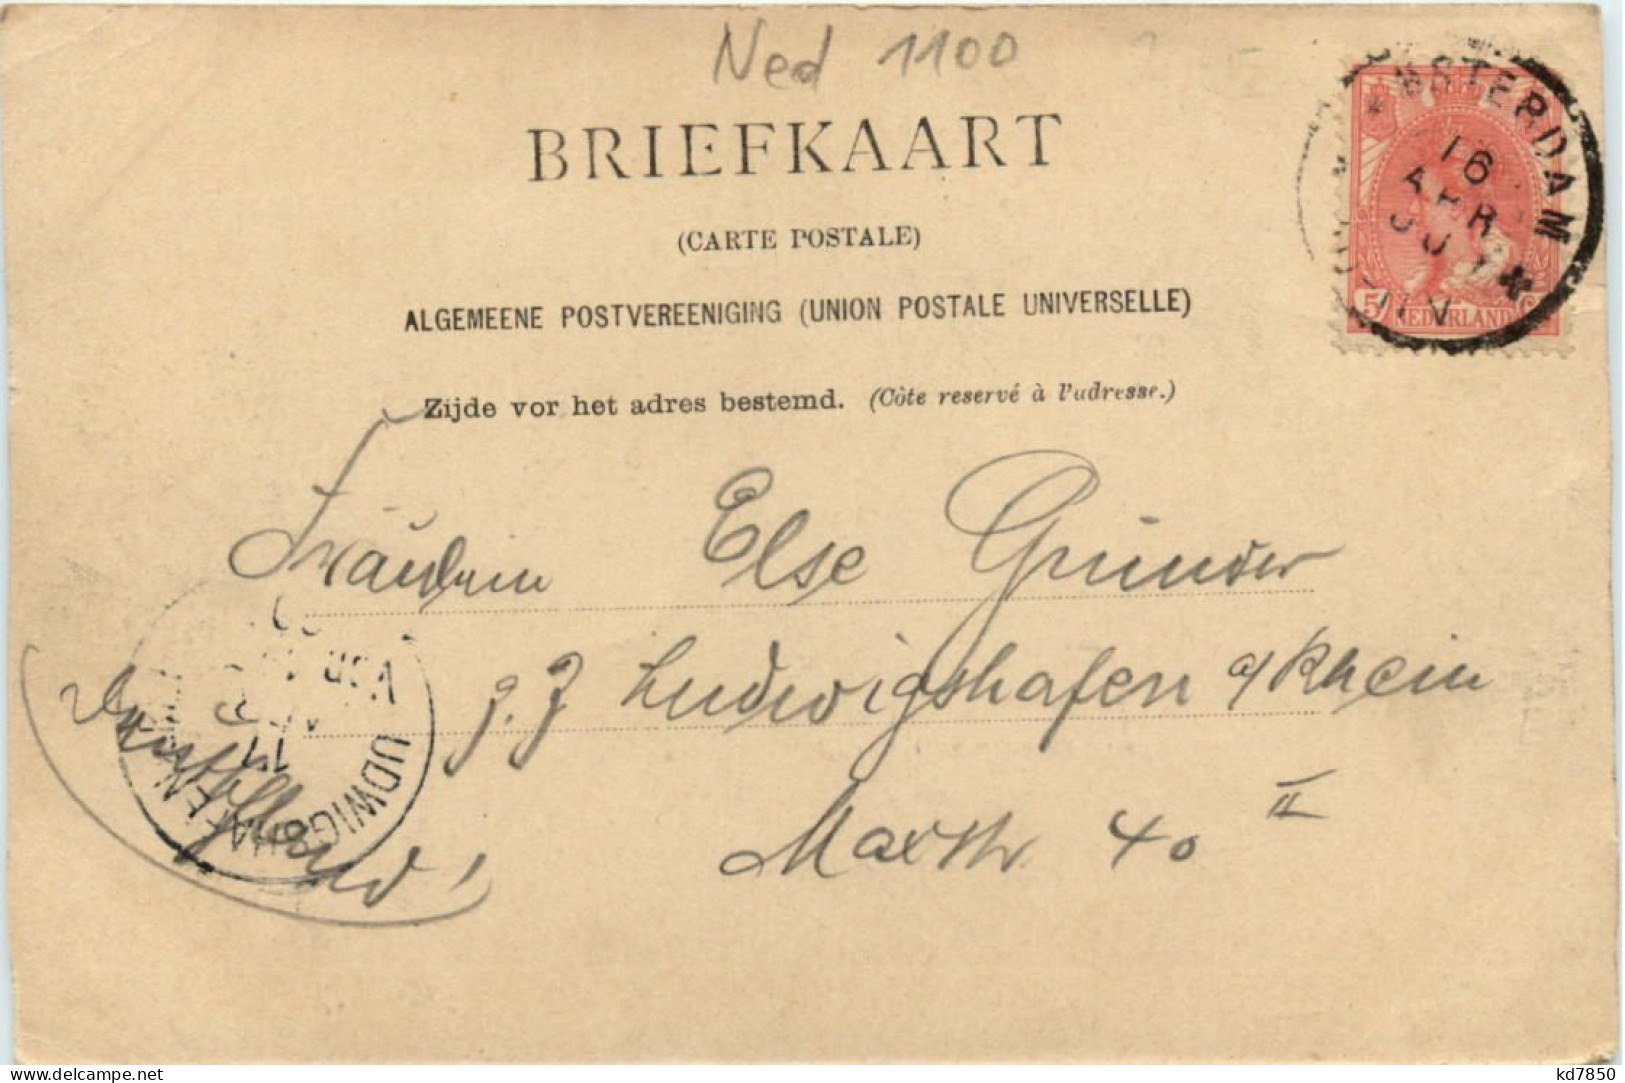 Ned 1100
BRIEFKAART
(CARTE POSTALE)
ALGEMEENE POSTVEREENIGING (UNION POSTALE UNIVERSELLE)
Zijde vor het adres bestemd. (Côte reservé à l'adresse.)
AMSTERDAM
16
APR
5 NEDERLAND C
Fräulein Else Gründer
z. Z Ludwigshafen a/Rhein
Maxstr. 40 II
Deutschland!
LUDWIGSHAFEN
17
delcampe.net
kd7850